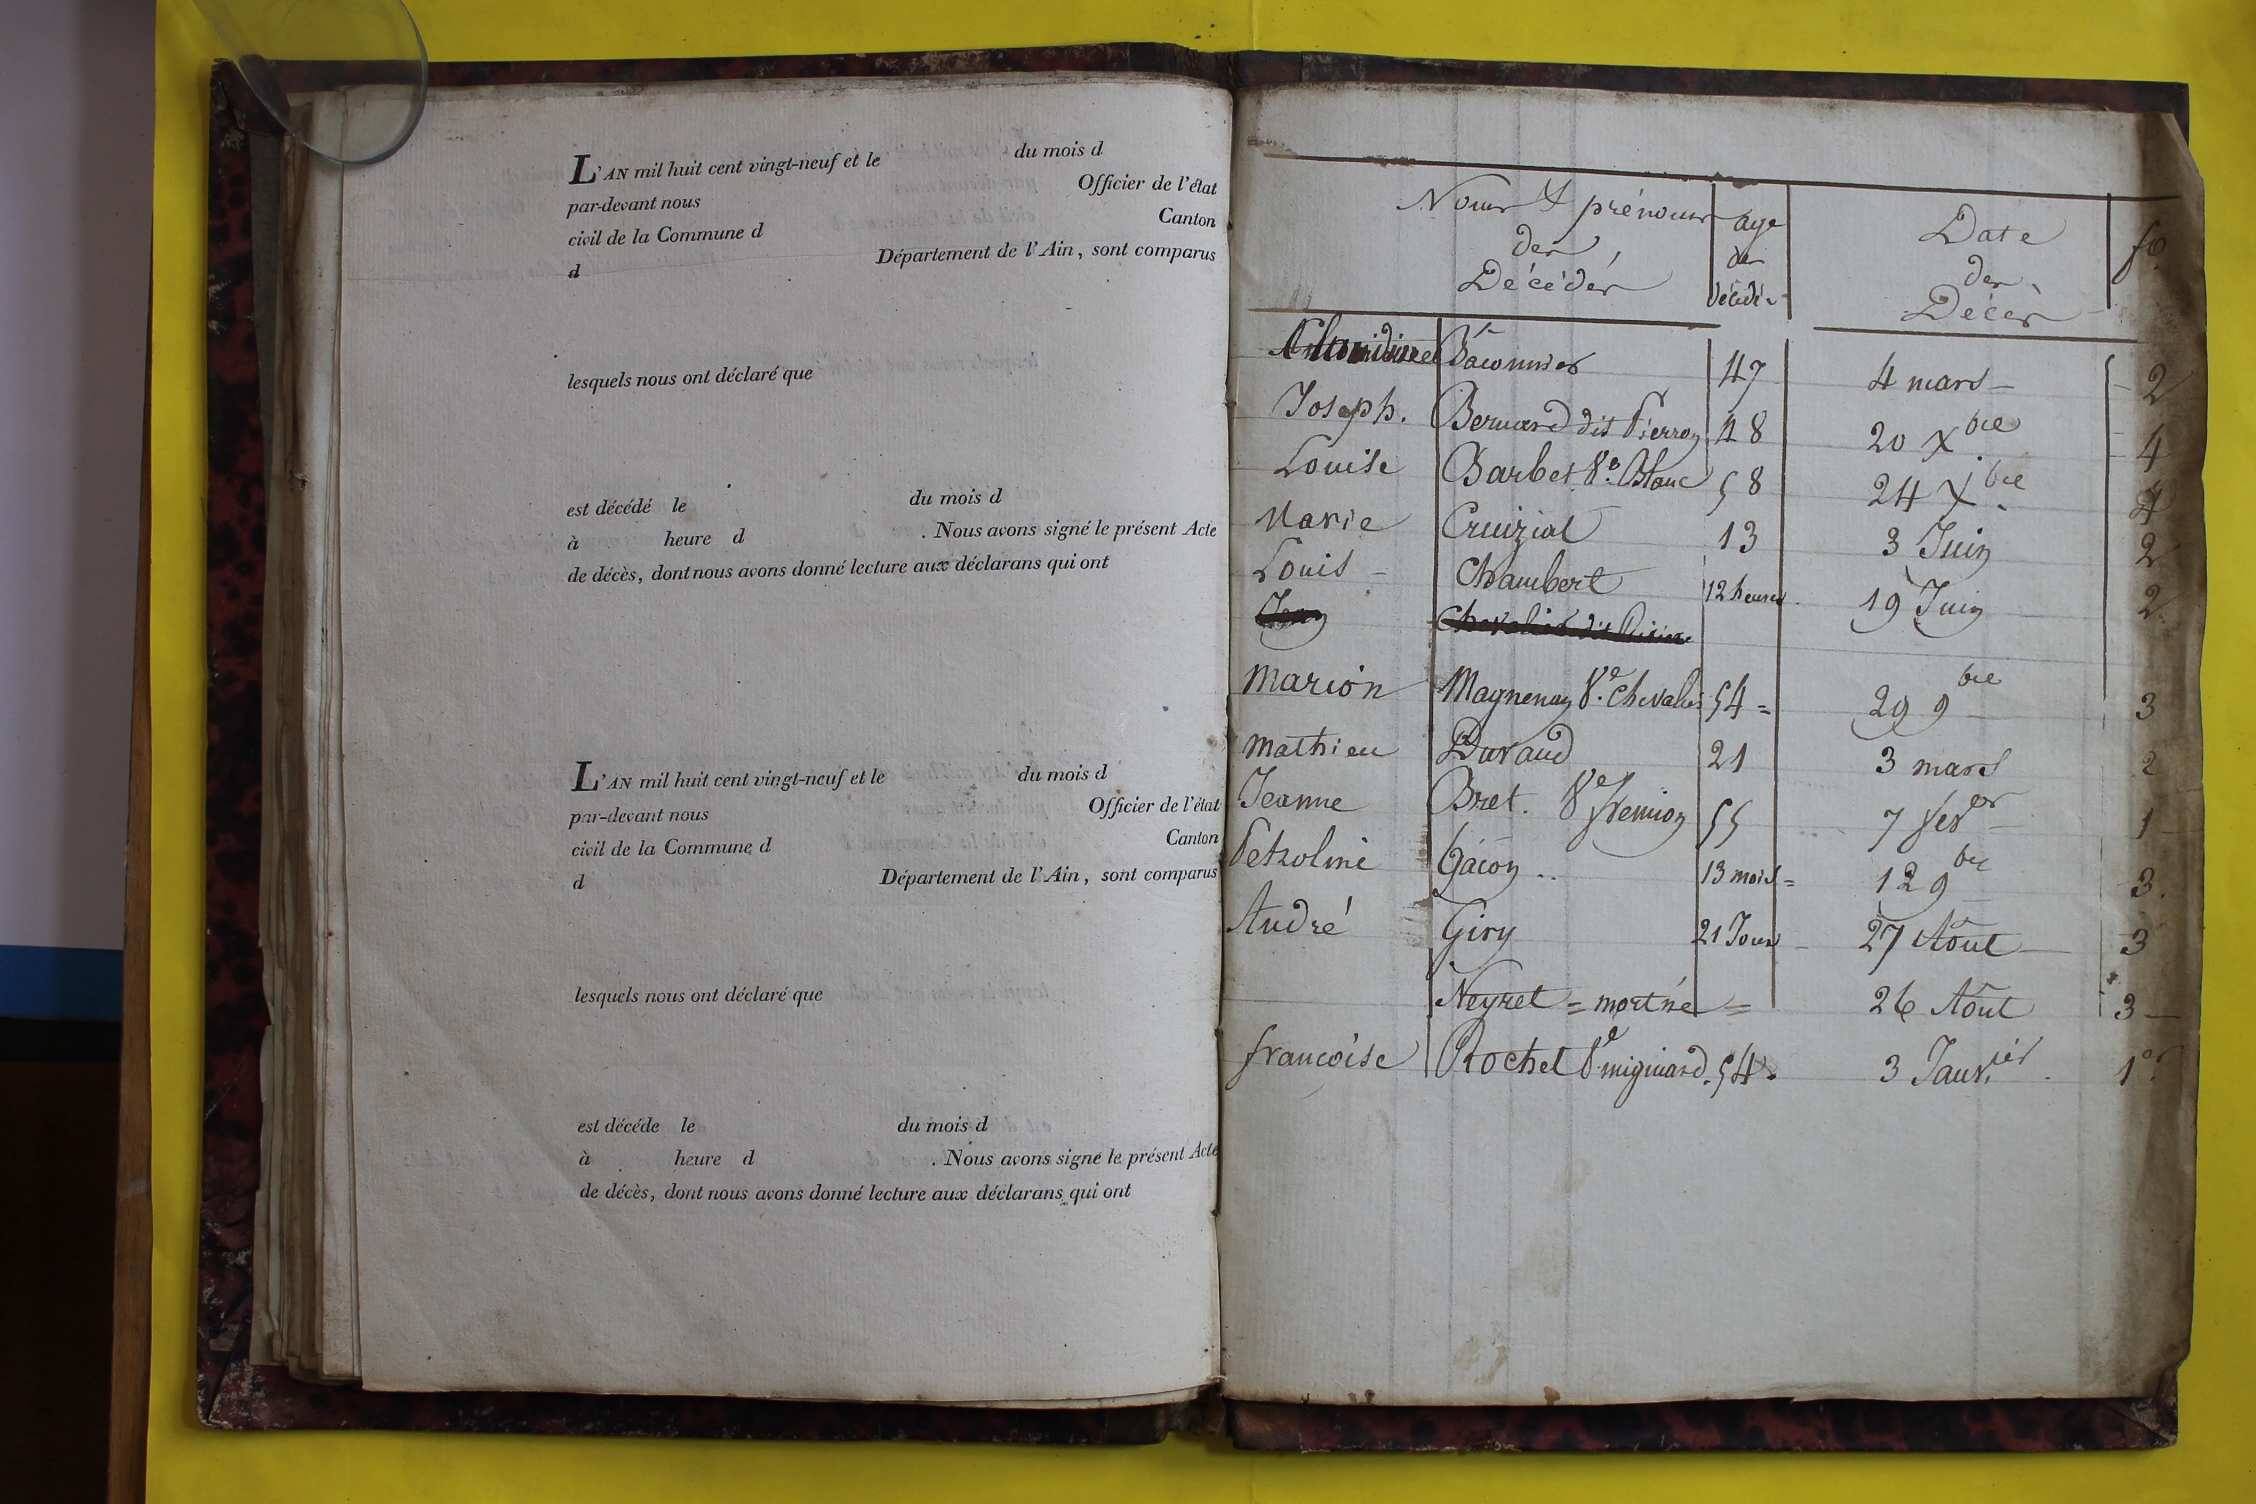 L'AN mil huit cent vingt-neuf et le du mois d
par-devant nous Officier de l'état
civil de la Commune d Canton
d Département de l'Ain, sont comparus
lesquels nous ont déclaré que
est décédé le du mois d
à heure d . Nous avons signé le présent Acte
de décès, dont nous avons donné lecture aux déclarans qui ont
L'AN mil huit cent vingt-neuf et le du mois d
par-devant nous Officier de l'état
civil de la Commune d Canton
d Département de l'Ain, sont comparus
lesquels nous ont déclaré que
est décéde le du mois d
à heure d . Nous avons signé le présent Acte
de décès, dont nous avons donné lecture aux déclarans qui ont
Noms & prénoms age Date fo.
des des des
Décédés décédés Décès
Baconnier 47 4 mars 2
Joseph. Bernard dit Pierron 48 20 Xbre 4
Louise Barbet Ve. Blanc 58 24 Xbre 4
Marie Cruiziat 13 3 Juin 2
Louis Chambert 12 heures 19 Juin 2
Jean Chevalier dit
Marion Magnenay Ve. Chevalier 54 = 29 9bre 3
Mathieu Durand 21 3 mars 2
Jeanne Bret. Ve fremion 55 7 fever 1
Petroline Gacon .. 13 mois = 12 9bre 3.
André Giry 21 Jours 27 Aout 3
Neyret = mort né = 26 Aout 3
francoise Rochet Ve migniard. 54. 3 Janvier 1er